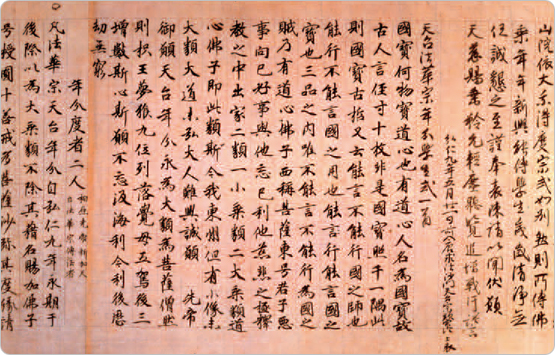 山院依大乘得度宗式如別 然則所傳佛
乘年年新興所傳學生歳歳清淨不
任誠懇之至謹奉表陳請以聞伏願
天慈賜垂矜允輕塵
弘仁九年五月廿一日前入唐求法沙門最澄上表
天台法華宗年分學生式一首
國寶何物寶道心也有道心人名為國寶故
古人言徑寸十枚非是國寶照千一隅此
則國寶古哲又云能言不能行國之師也
能行不能言國之用也能行能言國之
寶也三品之内唯不能言不能行為國之
賊乃有道心佛子西稱菩薩東号君子惡
事向己好事與他忘己利他慈悲之極釋
教之中出家二類一小乘類二大乘類道
心佛子即此類斯今我東州但有小像未
大類大道未弘大人難興誠願 先帝
御願天台年分永為大類為菩薩僧然
則枳王夢猴九位列落覺母五駕後三
増數斯心斯願不忘汲海利今利後歴
劫無窮
年分度者二人 柏原先帝新加天台法華宗傳法者
凡法華宗天台年分自弘仁九年永期于
後際以為大乘類不除其籍名賜加佛子
号授圓十善戒為菩薩沙弥其度縁請